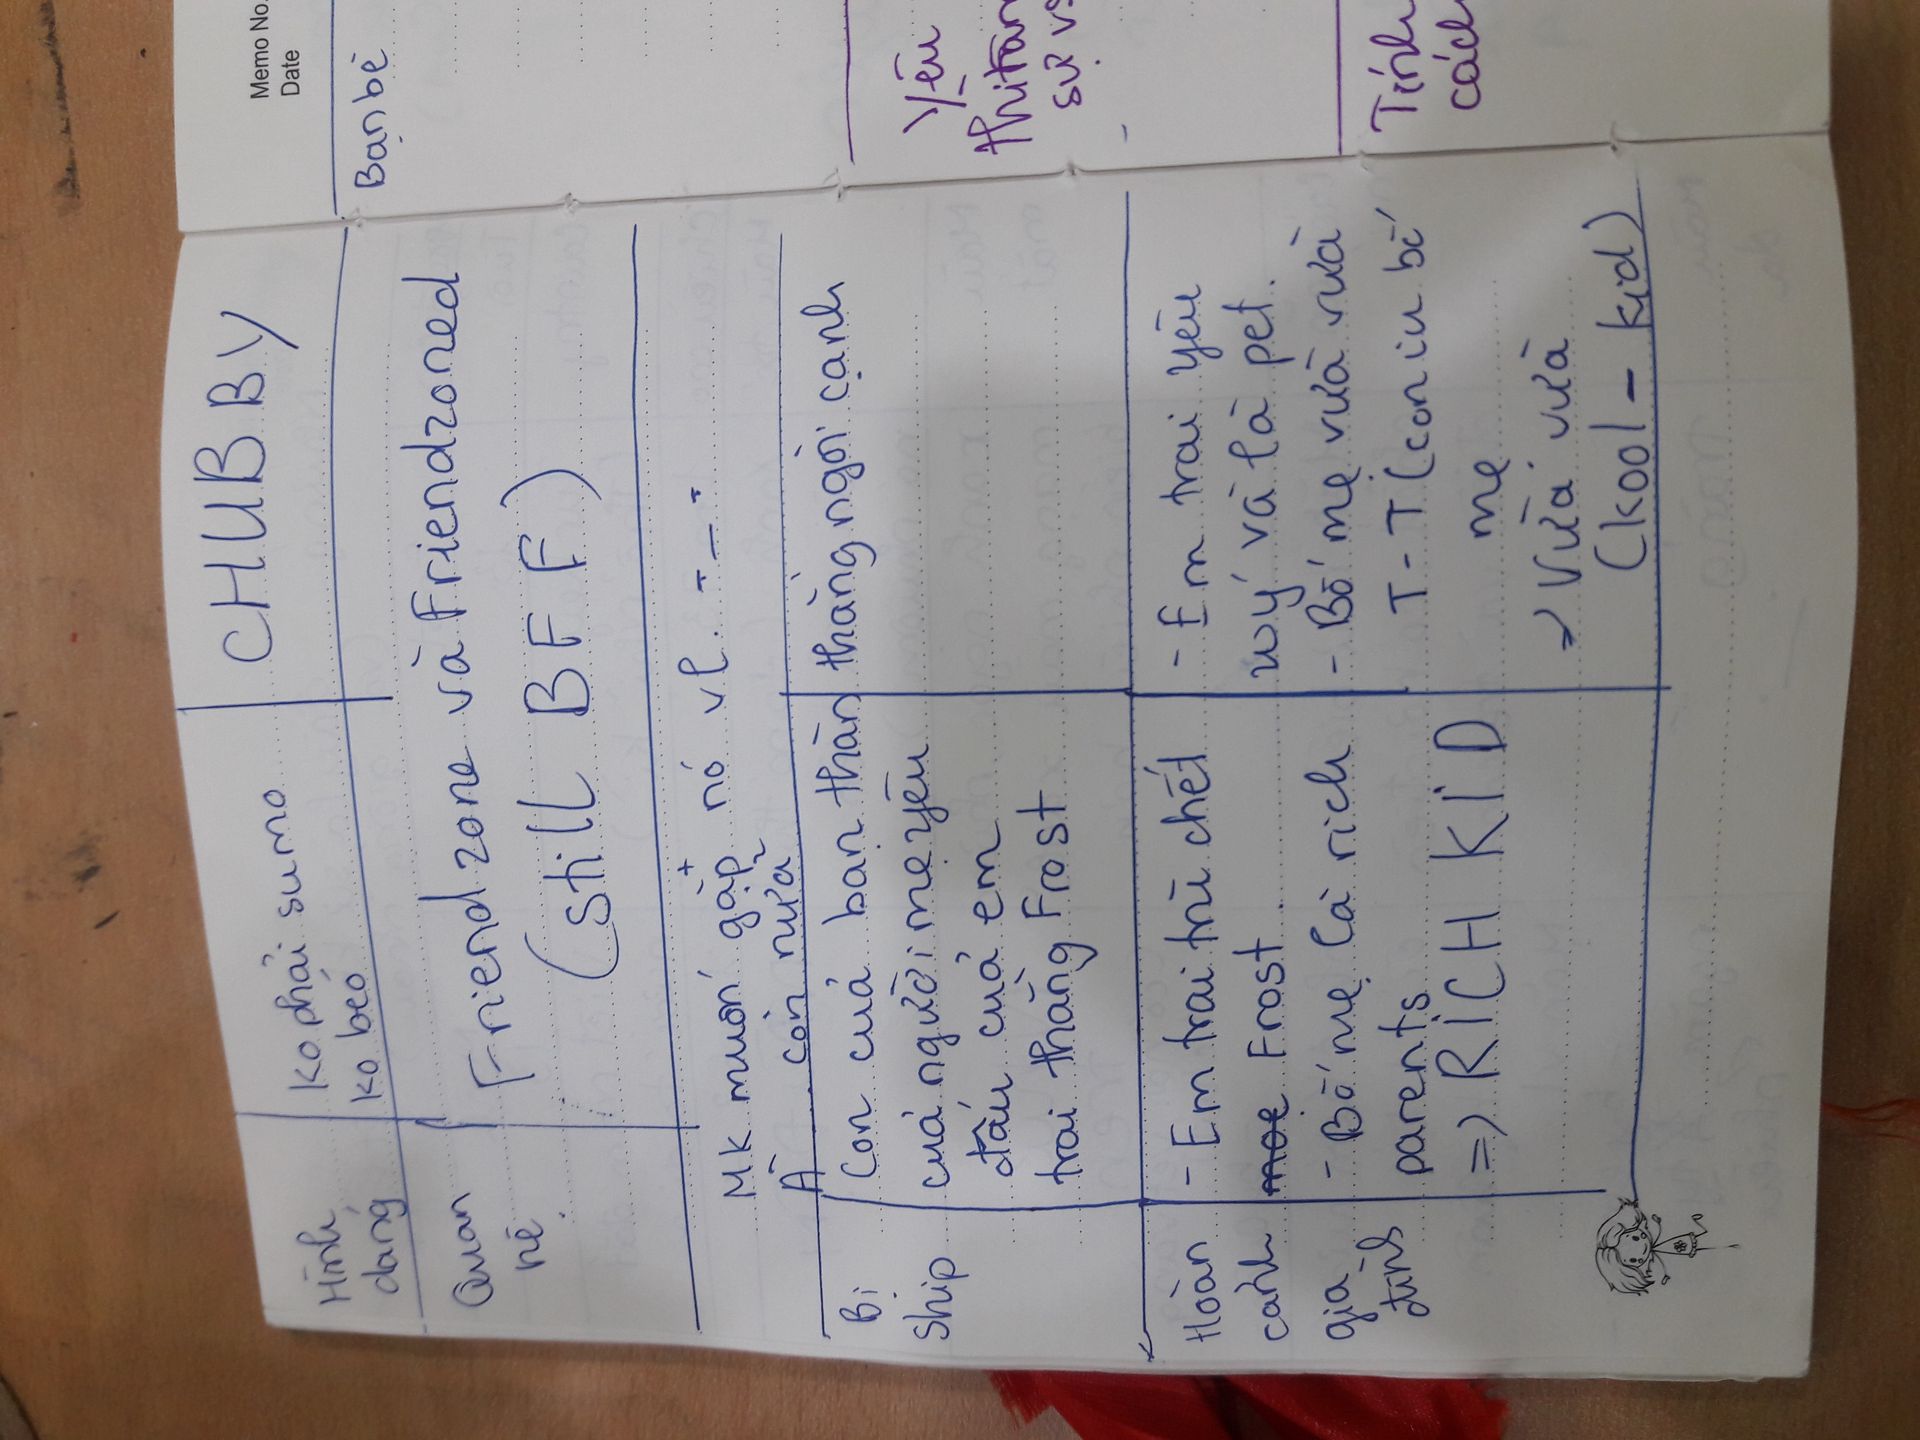 Hình dáng
Ko phải sumo
ko béo
CHUBBY
Quan
hệ
Friend zone và Friendzoned
(still BFF)
Mk muốn gặp nó vl. T_T
À còn nữa
Bị
ship
Con của bạn thân
của người mẹ yêu
dấu của em
trai thằng Frost
thằng ngồi cạnh
Hoàn
cảnh
gia
đình
- Em trai trù chết
Frost
- Bố mẹ là rich
parents
=> RICH KID
- Em trai yêu
quý và là pet.
- Bố mẹ vừa vừa
T-T (con iu bố
mẹ
Vừa vừa
(kool - kid)
Memo No.
Date
Bạn bè
Yêu
Tính
cách